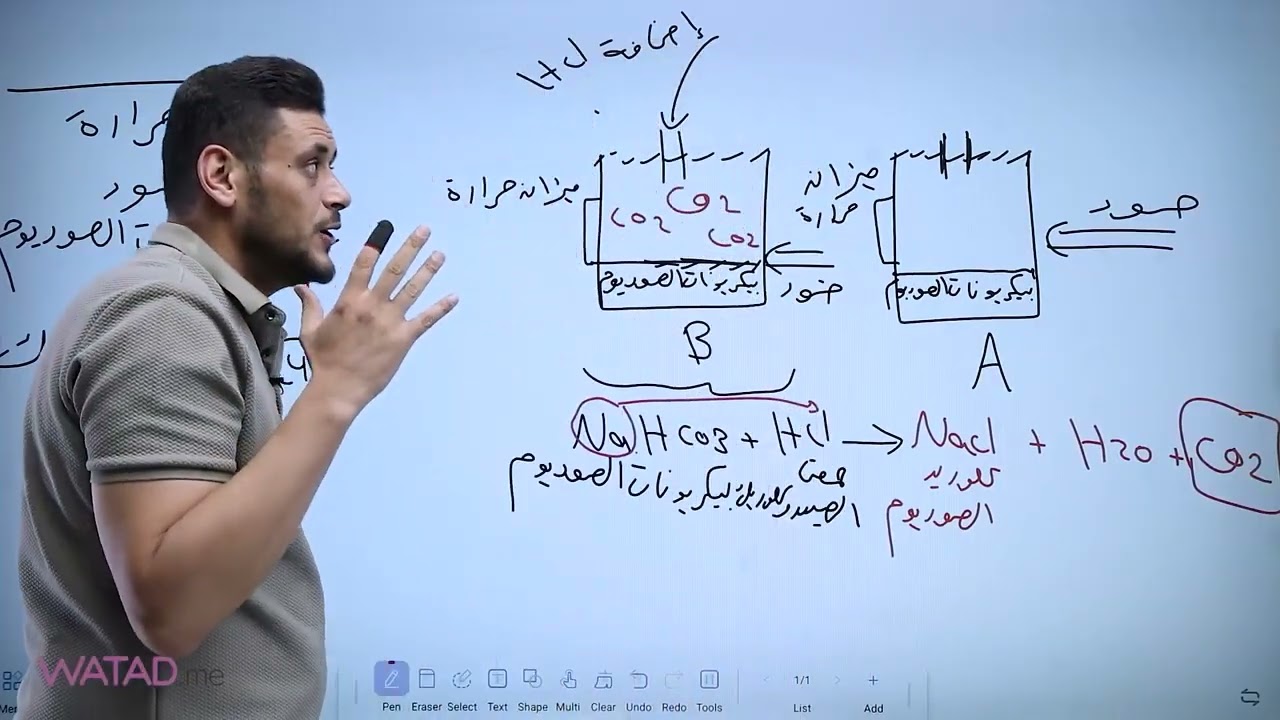 إضافة HCl
حرارة
ميزان حرارة
CO2
CO2
CO2
بيكربونات الصوديوم
ضوء
B
ميزان
حرارة
ضوء
بيكربونات الصوديوم
A
NaHCO3 + HCl → NaCl + H2O + CO2
بيكربونات الصوديوم
حمض
الهيدروكلوريك
كلوريد
الصوديوم
WATAD.me
Pen Eraser Select Text Shape Multi Clear Undo Redo Tools
1/1
List
Add